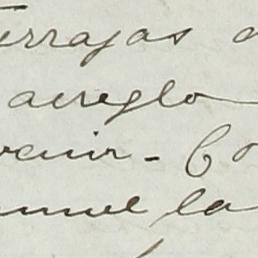 terrajas a
arreglo
venir - Co
anuel la